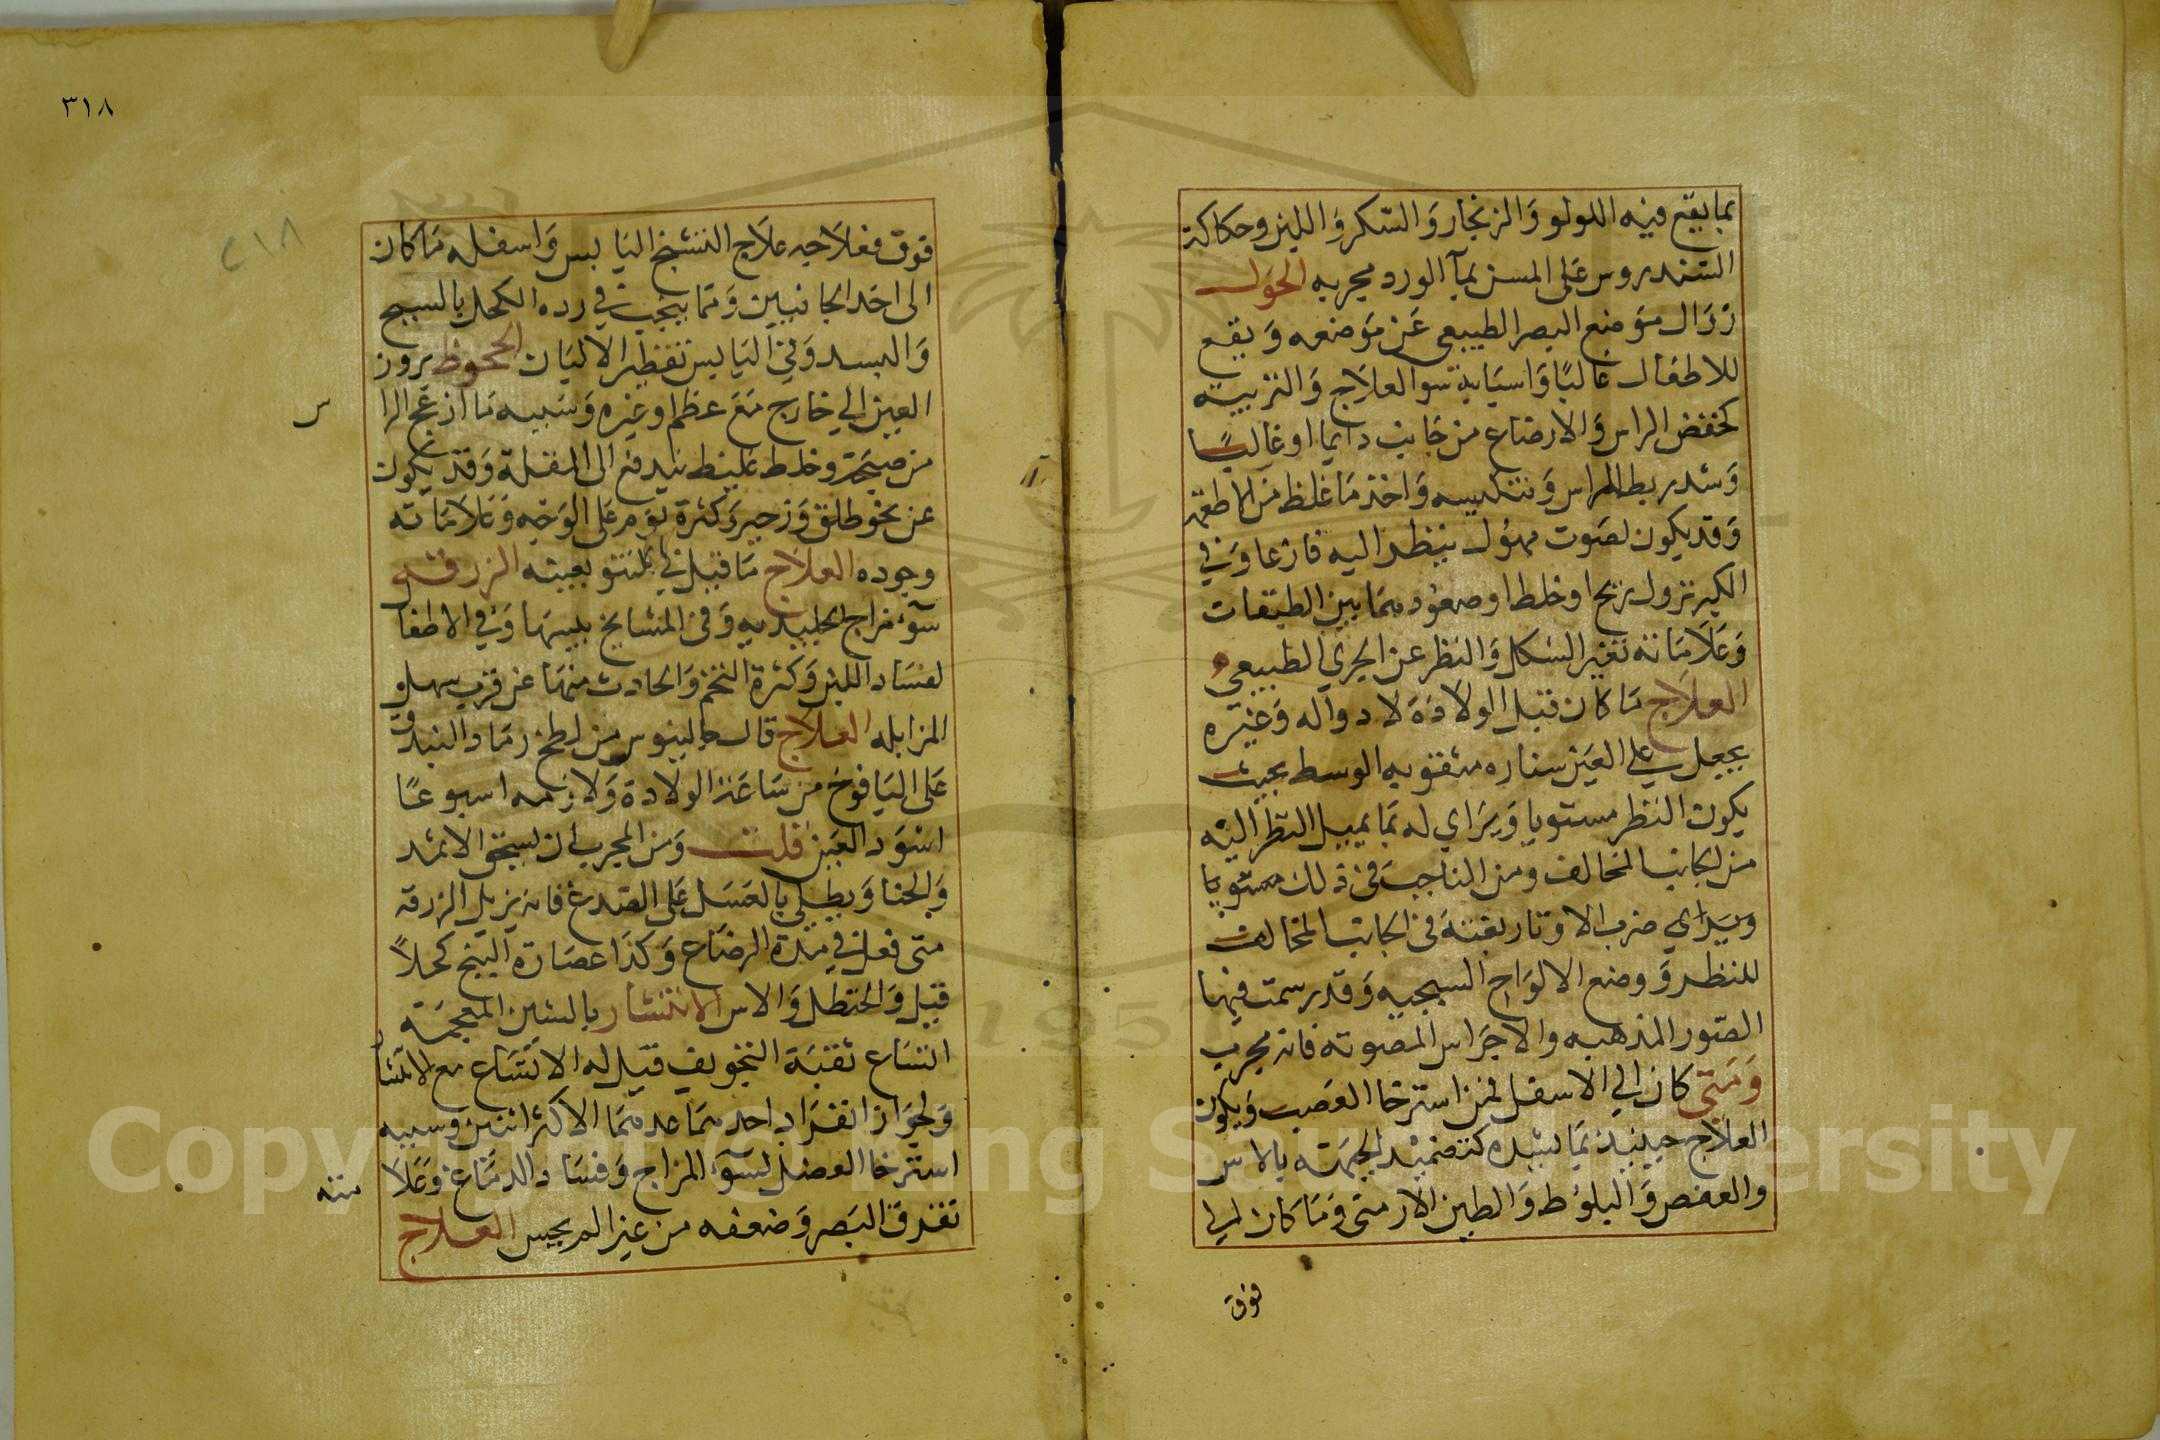 بما يقع فيه اللولو والزنجار والسكر واللبن وحكاكة
السندروس على المسن بمآ الورد مجربه الحول
زوال موضع البصر الطبيعي عن موضعه ويقع
للاطفال غالبًا واسبابه سوا العلاج والتربيه
كخفض الراس والارضاع من جانب دايما او غالبًا
وشد ربط الراس وتنكيسه واخذ ما غلظ من الاطعمه
وقد يكون لصوت مهول ينظر اليه فازعا وفي
الكبير نزول ريح او خلط او صعود مما بين الطبقات
وعلاماته تغير الشكل والنظر عن المجري الطبيعي
العلاج ما كان قبل الولادة لا دوآله وغيره
يجعل على العين ستاره مثقوبه الوسط بحيث
يكون النظر مستويا ويراي له بما يميل النظر اليه
من الجانب المخالف ومن الناجب في ذلك مستويا
ويراي ضرب الاوتار بغتة في الجانب المخالف
للنظر ووضع الالواح السبجيه وقد رسمت فيها
الصور المذهبه والاجراس المصوته فانه مجرب
ومتى كان الي الاسفل فمن استرخا العصب ويكون
العلاج حينيذ بما يشده كتضميد الجبهته بالاس
والعفص والبلوط والطين الارمني وما كان الي
فوق
٣١٨
٢١٨
فوق فعلاجه علاج التشنج اليابس واسفله ما كان
الى احد الجانبين ومما يجب في رده الكحل بالسبج
والبسد وفي اليابس تقطير الالبان الجحوظ بروز
العين الي خارج مع عظم او غيره وسببه ما ازعج الرا
س
من صيحة وخلط غليظ يندفع الى المقلة وقد يكون
عن نحو طلق وزحير وكثرة نوم على الوجه وعلاماته
وجوده العلاج ما قيل في النتو بعينه الزرقه
سوء مزاج الجليديه وفي المشايخ يبسها وفي الاطفا
لفساد اللبن وكثرة التخم والحادث منها عن قرب سهلو
المزابله العلاج قال جالينوس من لطخ رماد البندق
على اليافوخ من ساعة الولادة ولازمه اسبوعًا
اسود العين قلت ومن المجرب ان يسحق الاثمد
والحنا ويطلي بالعسل على الصدغ فانه يزيل الزرقه
متى فعل في مدة الرضاع وكذا عصارة البنج كحلاً
قيل والحنظل والاس الانتشار بالشين المعجمة
اتساع ثقبة التجويف قيل له الاتساع مع الانتشار
ولجواز انفراد احدهما عدهما الاكثر اثنين وسببه
استرخا العضل لسوء المزاج وفساد الدماغ وعلا
مته
تفرق البصر وضعفه من غير الم يحس العلاج
Copyright © King Saud University
195